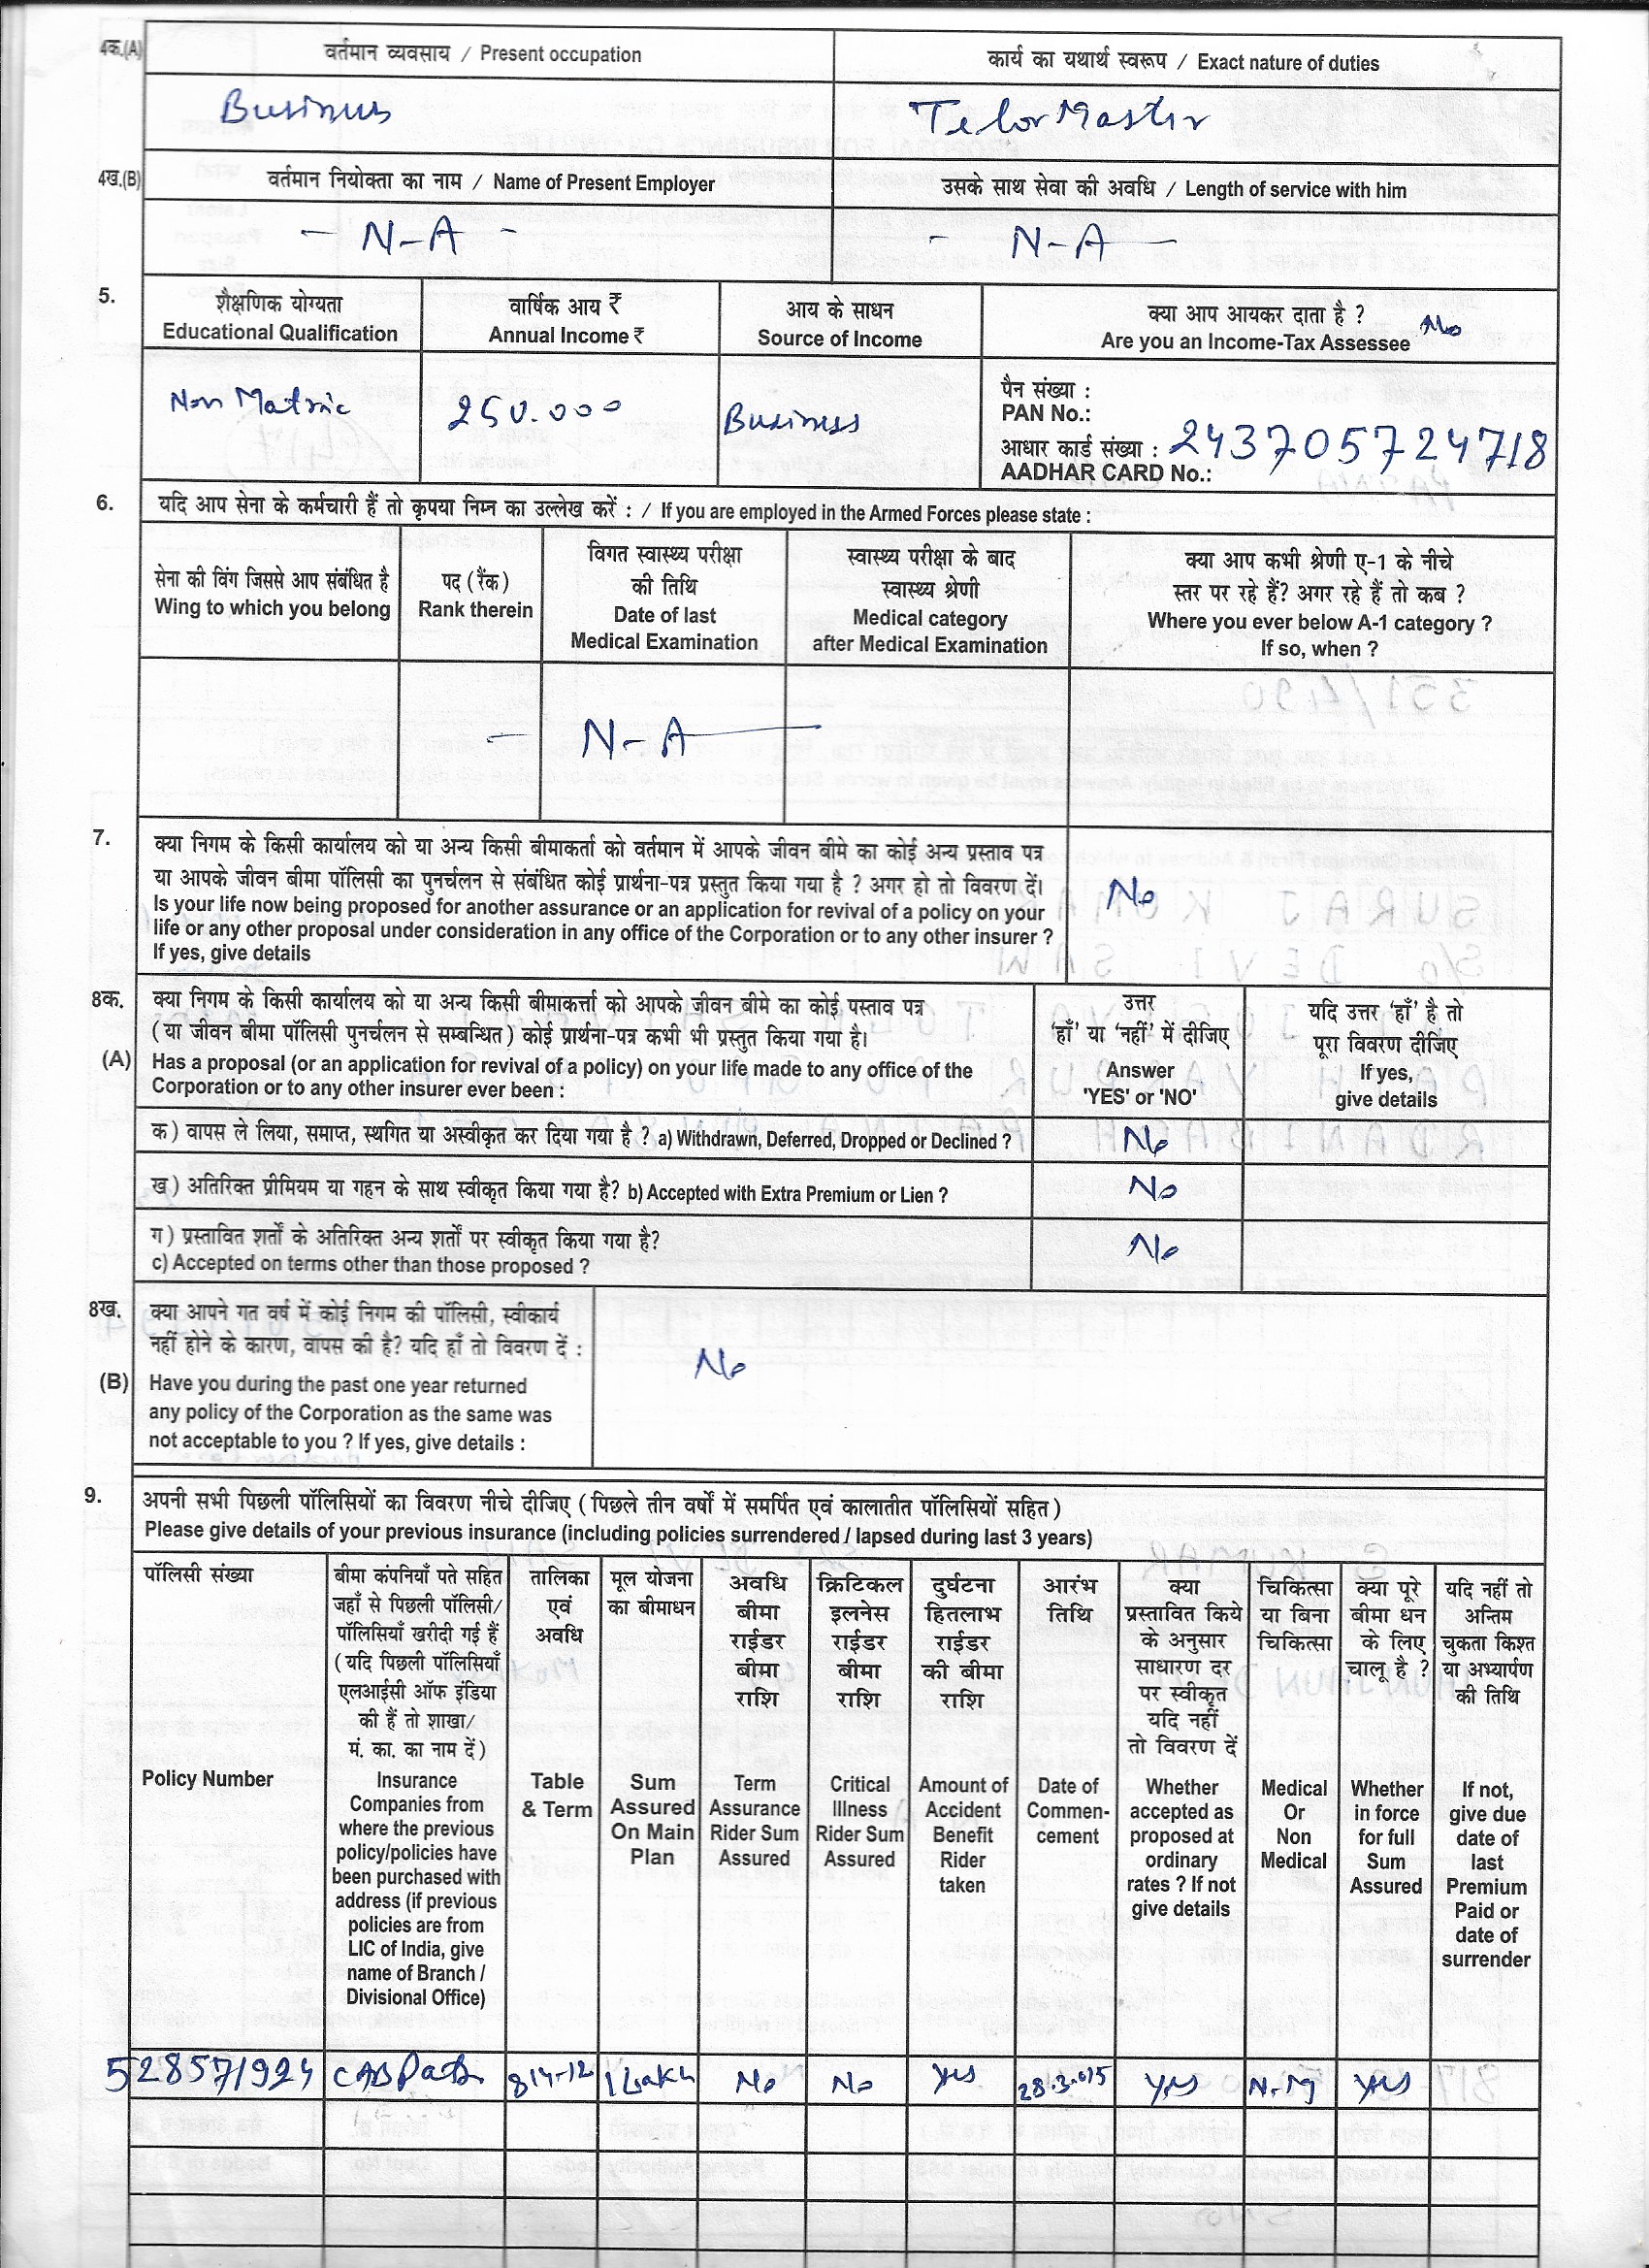 4क.(A) वर्तमान व्यवसाय / Present occupation कार्य का यथार्थ स्वरूप / Exact nature of duties
Business TelorMaster
4ख.(B) वर्तमान नियोक्ता का नाम / Name of Present Employer उसके साथ सेवा की अवधि / Length of service with him
- N-A - - N-A -
5. शैक्षणिक योग्यता वार्षिक आय ₹ आय के साधन क्या आप आयकर दाता है ? No
Educational Qualification Annual Income ₹ Source of Income Are you an Income-Tax Assessee
Non Matric 250.000 Business
पैन संख्या :
PAN No.:
आधार कार्ड संख्या : 243705724718
AADHAR CARD No.:
6. यदि आप सेना के कर्मचारी हैं तो कृपया निम्न का उल्लेख करें : / If you are employed in the Armed Forces please state :
सेना की विंग जिससे आप संबंधित है
Wing to which you belong
पद (रैंक)
Rank therein
विगत स्वास्थ्य परीक्षा
की तिथि
Date of last
Medical Examination
स्वास्थ्य परीक्षा के बाद
स्वास्थ्य श्रेणी
Medical category
after Medical Examination
क्या आप कभी श्रेणी ए-1 के नीचे
स्तर पर रहे हैं? अगर रहे हैं तो कब ?
Where you ever below A-1 category ?
If so, when ?
- N-A -
7. क्या निगम के किसी कार्यालय को या अन्य किसी बीमाकर्ता को वर्तमान में आपके जीवन बीमे का कोई अन्य प्रस्ताव पत्र
या आपके जीवन बीमा पॉलिसी का पुनर्चलन से संबंधित कोई प्रार्थना-पत्र प्रस्तुत किया गया है ? अगर हो तो विवरण दें।
Is your life now being proposed for another assurance or an application for revival of a policy on your
life or any other proposal under consideration in any office of the Corporation or to any other insurer ?
If yes, give details
No
8क. क्या निगम के किसी कार्यालय को या अन्य किसी बीमाकर्त्ता को आपके जीवन बीमे का कोई पस्ताव पत्र
(या जीवन बीमा पॉलिसी पुनर्चलन से सम्बन्धित) कोई प्रार्थना-पत्र कभी भी प्रस्तुत किया गया है।
(A) Has a proposal (or an application for revival of a policy) on your life made to any office of the
Corporation or to any other insurer ever been :
उत्तर
'हाँ' या 'नहीं' में दीजिए
Answer
'YES' or 'NO'
यदि उत्तर 'हाँ' है तो
पूरा विवरण दीजिए
If yes,
give details
क) वापस ले लिया, समाप्त, स्थगित या अस्वीकृत कर दिया गया है ? a) Withdrawn, Deferred, Dropped or Declined ? No
ख) अतिरिक्त प्रीमियम या गहन के साथ स्वीकृत किया गया है? b) Accepted with Extra Premium or Lien ? No
ग) प्रस्तावित शर्तों के अतिरिक्त अन्य शर्तों पर स्वीकृत किया गया है?
c) Accepted on terms other than those proposed ? No
8ख. क्या आपने गत वर्ष में कोई निगम की पॉलिसी, स्वीकार्य
नहीं होने के कारण, वापस की है? यदि हाँ तो विवरण दें :
(B) Have you during the past one year returned
any policy of the Corporation as the same was
not acceptable to you ? If yes, give details :
No
9. अपनी सभी पिछली पॉलिसियों का विवरण नीचे दीजिए (पिछले तीन वर्षों में समर्पित एवं कालातीत पॉलिसियों सहित)
Please give details of your previous insurance (including policies surrendered / lapsed during last 3 years)
पॉलिसी संख्या
Policy Number
बीमा कंपनियाँ पते सहित
जहाँ से पिछली पॉलिसी/
पॉलिसियाँ खरीदी गई हैं
(यदि पिछली पॉलिसियाँ
एलआईसी ऑफ इंडिया
की हैं तो शाखा/
मं. का. का नाम दें)
Insurance
Companies from
where the previous
policy/policies have
been purchased with
address (if previous
policies are from
LIC of India, give
name of Branch /
Divisional Office)
तालिका
एवं
अवधि
Table
& Term
मूल योजना
का बीमाधन
Sum
Assured
On Main
Plan
अवधि
बीमा
राईडर
बीमा
राशि
Term
Assurance
Rider Sum
Assured
क्रिटिकल
इलनेस
राईडर
बीमा
राशि
Critical
Illness
Rider Sum
Assured
दुर्घटना
हितलाभ
राईडर
की बीमा
राशि
Amount of
Accident
Benefit
Rider
taken
आरंभ
तिथि
Date of
Commen-
cement
क्या
प्रस्तावित किये
के अनुसार
साधारण दर
पर स्वीकृत
यदि नहीं
तो विवरण दें
Whether
accepted as
proposed at
ordinary
rates ? If not
give details
चिकित्सा
या बिना
चिकित्सा
Medical
Or
Non
Medical
क्या पूरे
बीमा धन
के लिए
चालू है ?
Whether
in force
for full
Sum
Assured
यदि नहीं तो
अन्तिम
चुकता किश्त
या अभ्यार्पण
की तिथि
If not,
give due
date of
last
Premium
Paid or
date of
surrender
528571924 814-12 1 Lakh No No Yes 28.3.015 Yes N-M Yes